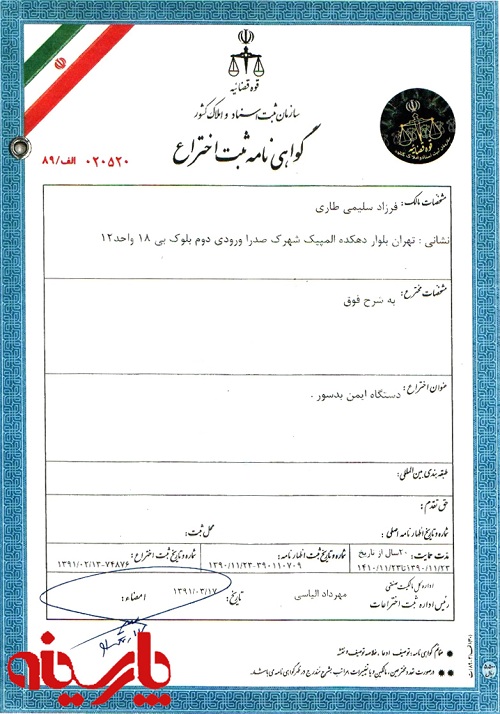 قوه قضائیه
سازمان ثبت اسناد و املاک کشور
گواهی نامه ثبت اختراع
قوه قضائیه
۰۲۰۵۲۰ الف/۸۹
مشخصات مالک: فرزاد سلیمی طاری
نشانی : تهران بلوار دهکده المپیک شهرک صدرا ورودی دوم بلوک بی ۱۸ واحد۱۲
مشخصات مخترع: به شرح فوق
عنوان اختراع: دستگاه ایمن بدسور .
طبقه بندی بین المللی:
حق تقدم:
شماره و تاریخ اظهارنامه اصلی: محل ثبت:
مدت حمایت: ۲۰سال از تاریخ
۱۳۹۰/۱۱/۲۳تا۱۴۱۰/۱۱/۲۳
شماره و تاریخ ثبت اظهارنامه:
۱۳۹۰/۱۱/۲۳-۳۹۰۱۱۰۷۰۹
شماره و تاریخ ثبت اختراع:
۱۳۹۱/۰۲/۱۳-۷۴۸۷۶
اداره کل مالکیت صنعتی
رئیس اداره ثبت اختراعات
مهرداد الیاسی
تاریخ: ۱۳۹۱/۰۳/۱۷
امضاء:
ضمائم گواهی نامه: توصیف، ادعا، خلاصه توصیف و نقشه
در صورت تعدد مخترعین، مالکین و یا تغییرات مراتب بشرح مندرج در ظهر گواهی نامه می باشد.
پارسینه